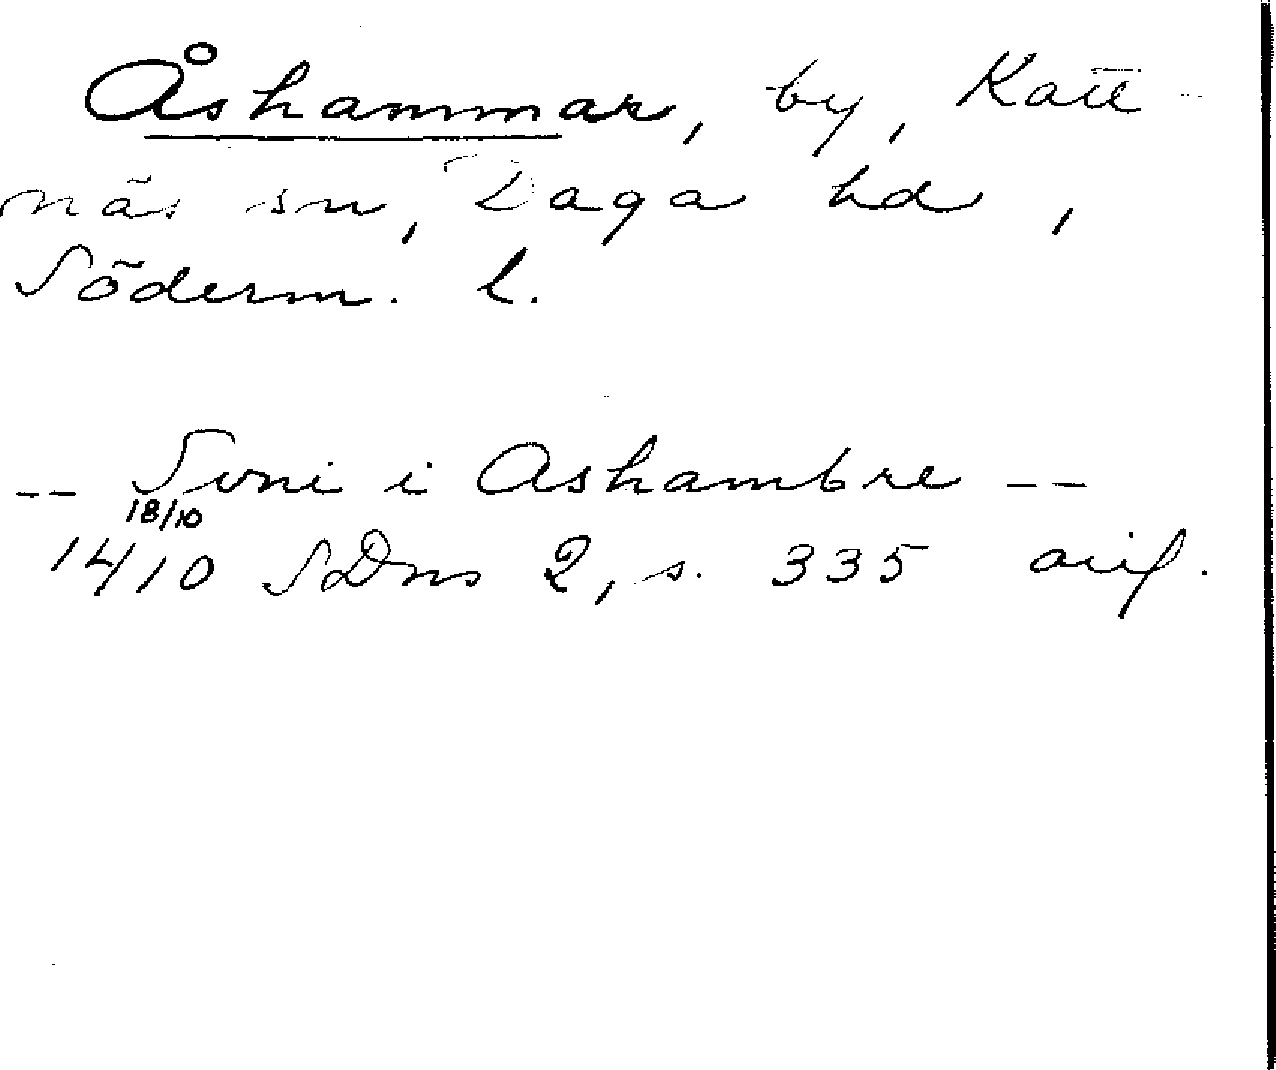 Åshammar, by, Katt-
näs sn, Daga hd,
Söderm. l.
-- Svni i Ashambre --
18/10
1410 SDns 2, s. 335 avf.